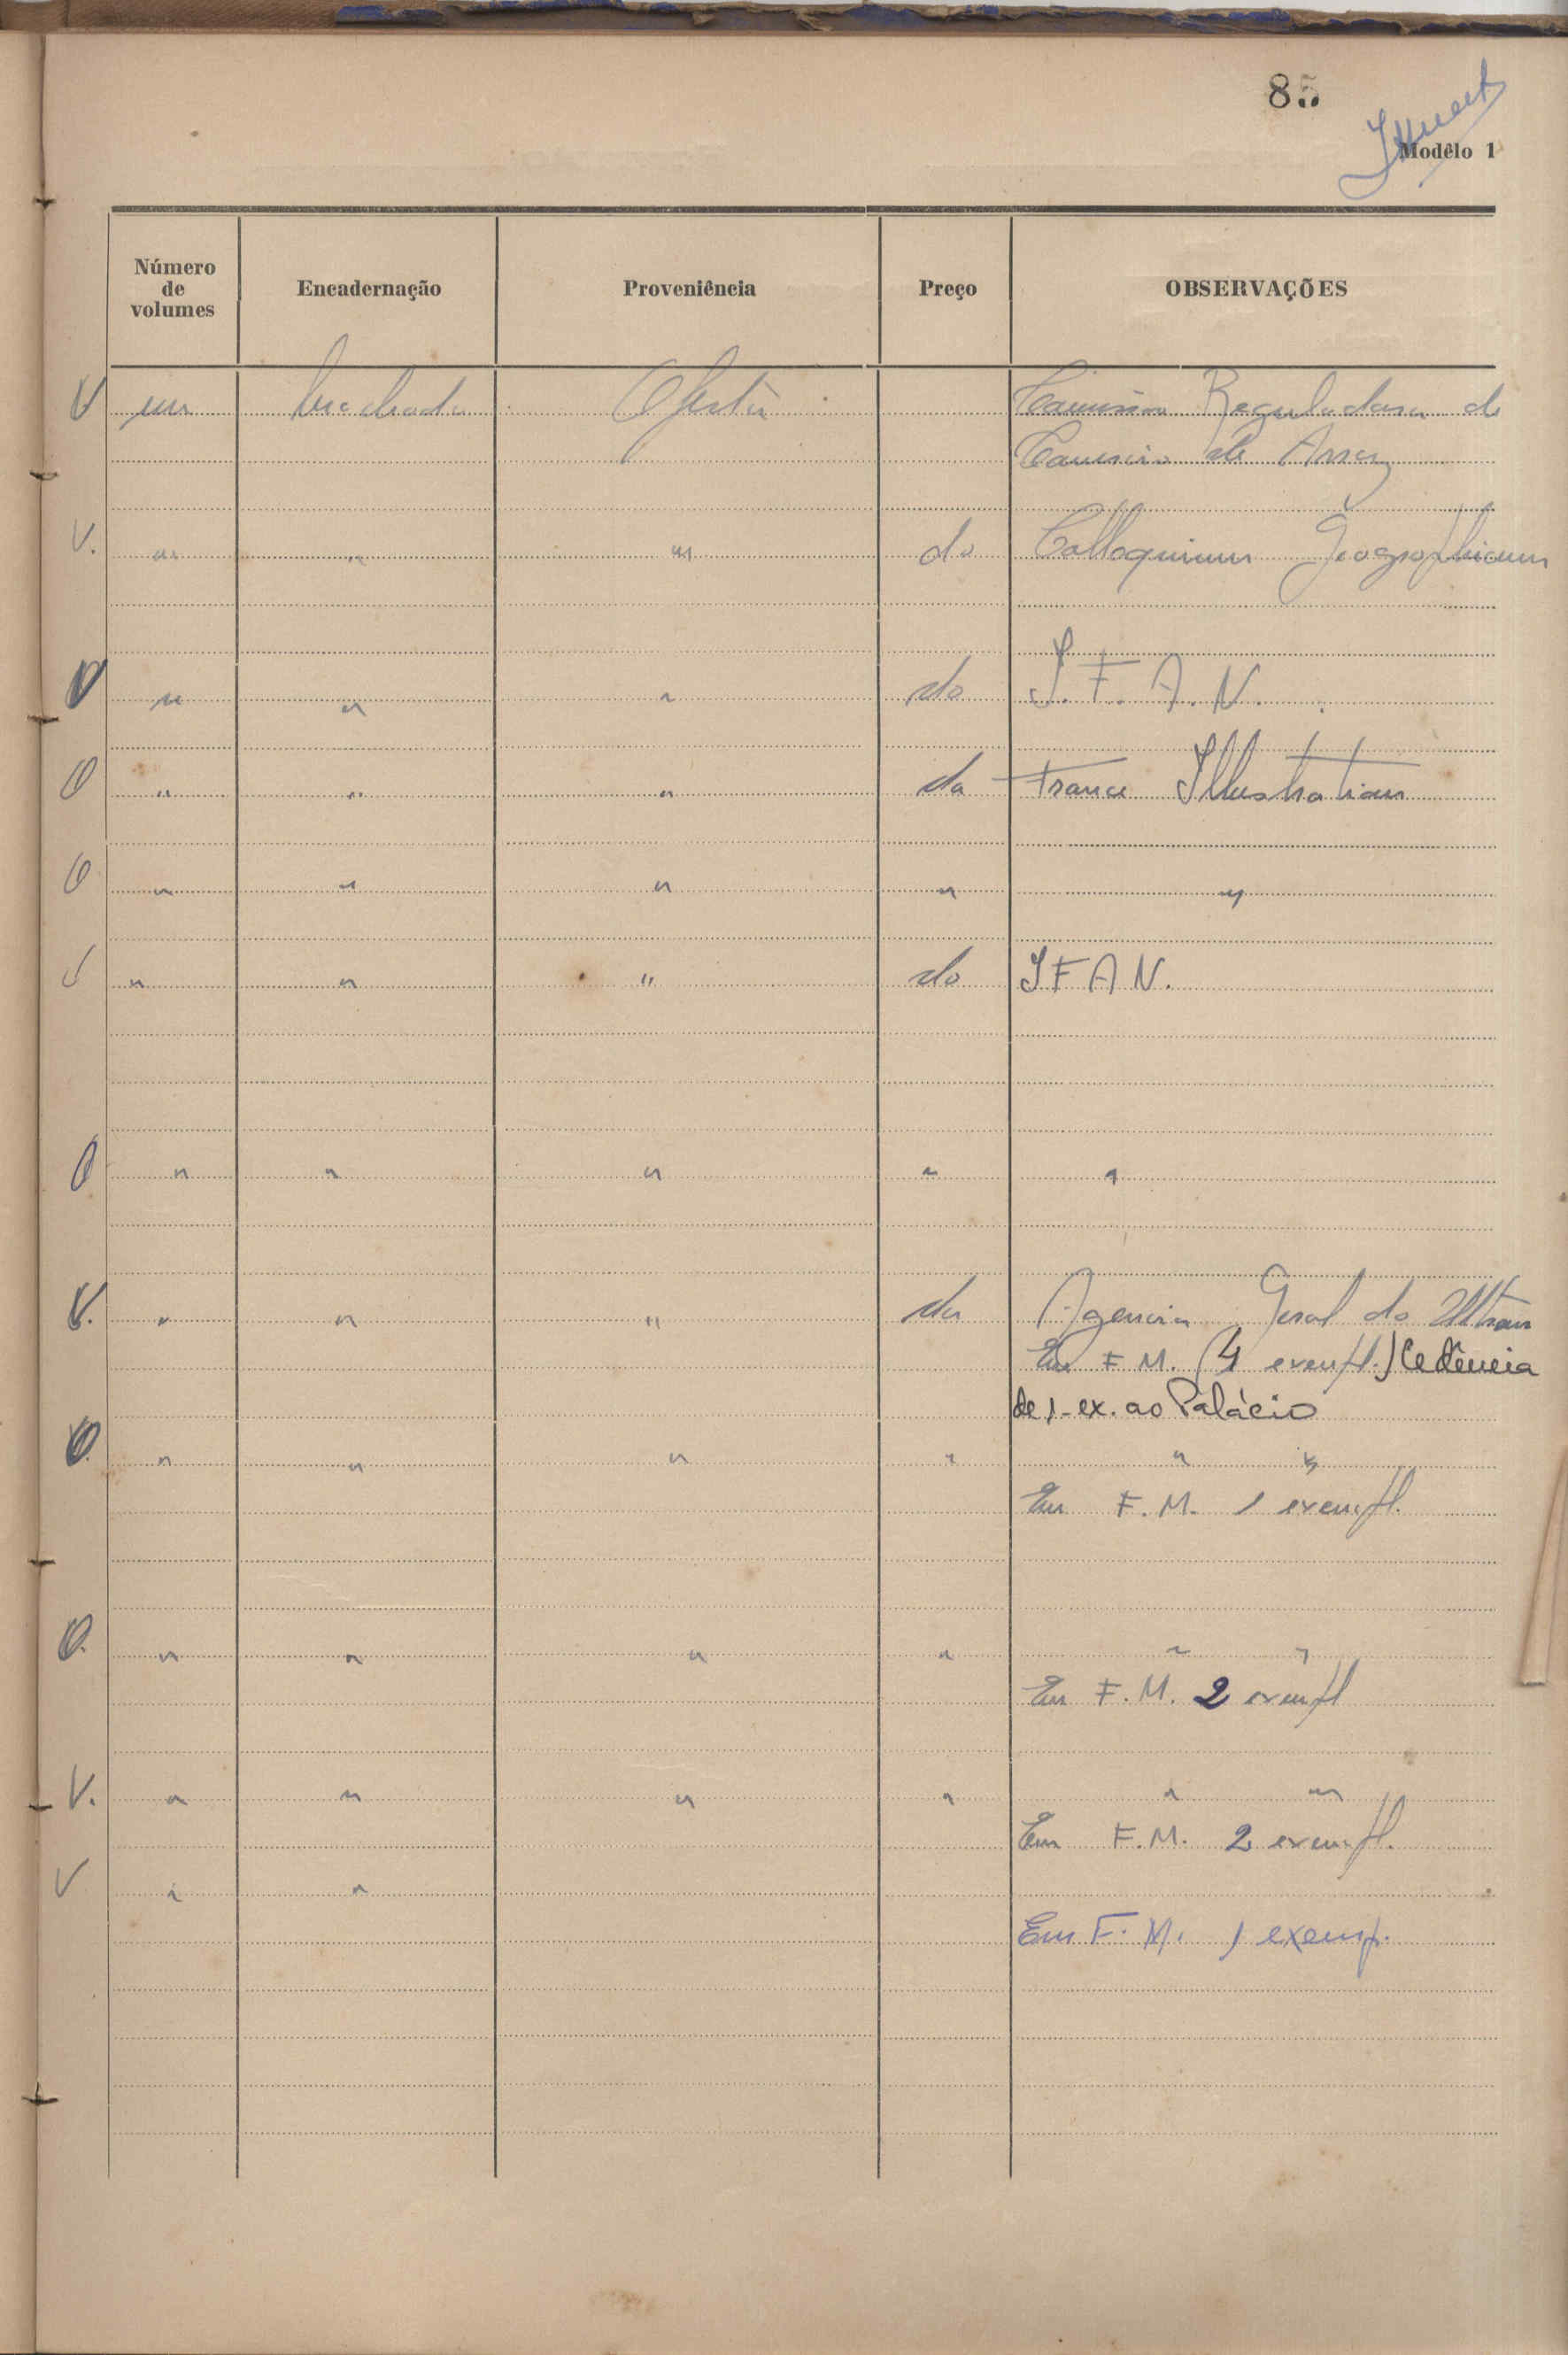 85
Modêlo 1
Número de volumes Encadernação Proveniência Preço OBSERVAÇÕES
V um brochado Oferta Comissão Reguladora do
Comércio de Arroz
V. " " " do Colloquium Geographicum
V " " " do I. F. A. N.
O " " " da France Illustration
O " " " " "
V " " " do IFAN.
O " " " " "
V. " " " da Agencia Geral do Ultram
Em F M. (4 exempl.) Cedência
de 1 ex. ao Palácio
O. " " " " " "
Em F. M. 1 exempl.
O. " " " " " "
Em F. M. 2 exempl
V. " " " " " "
Em F. M. 2 exempl.
V " "
Em F. M. 1 exemp.